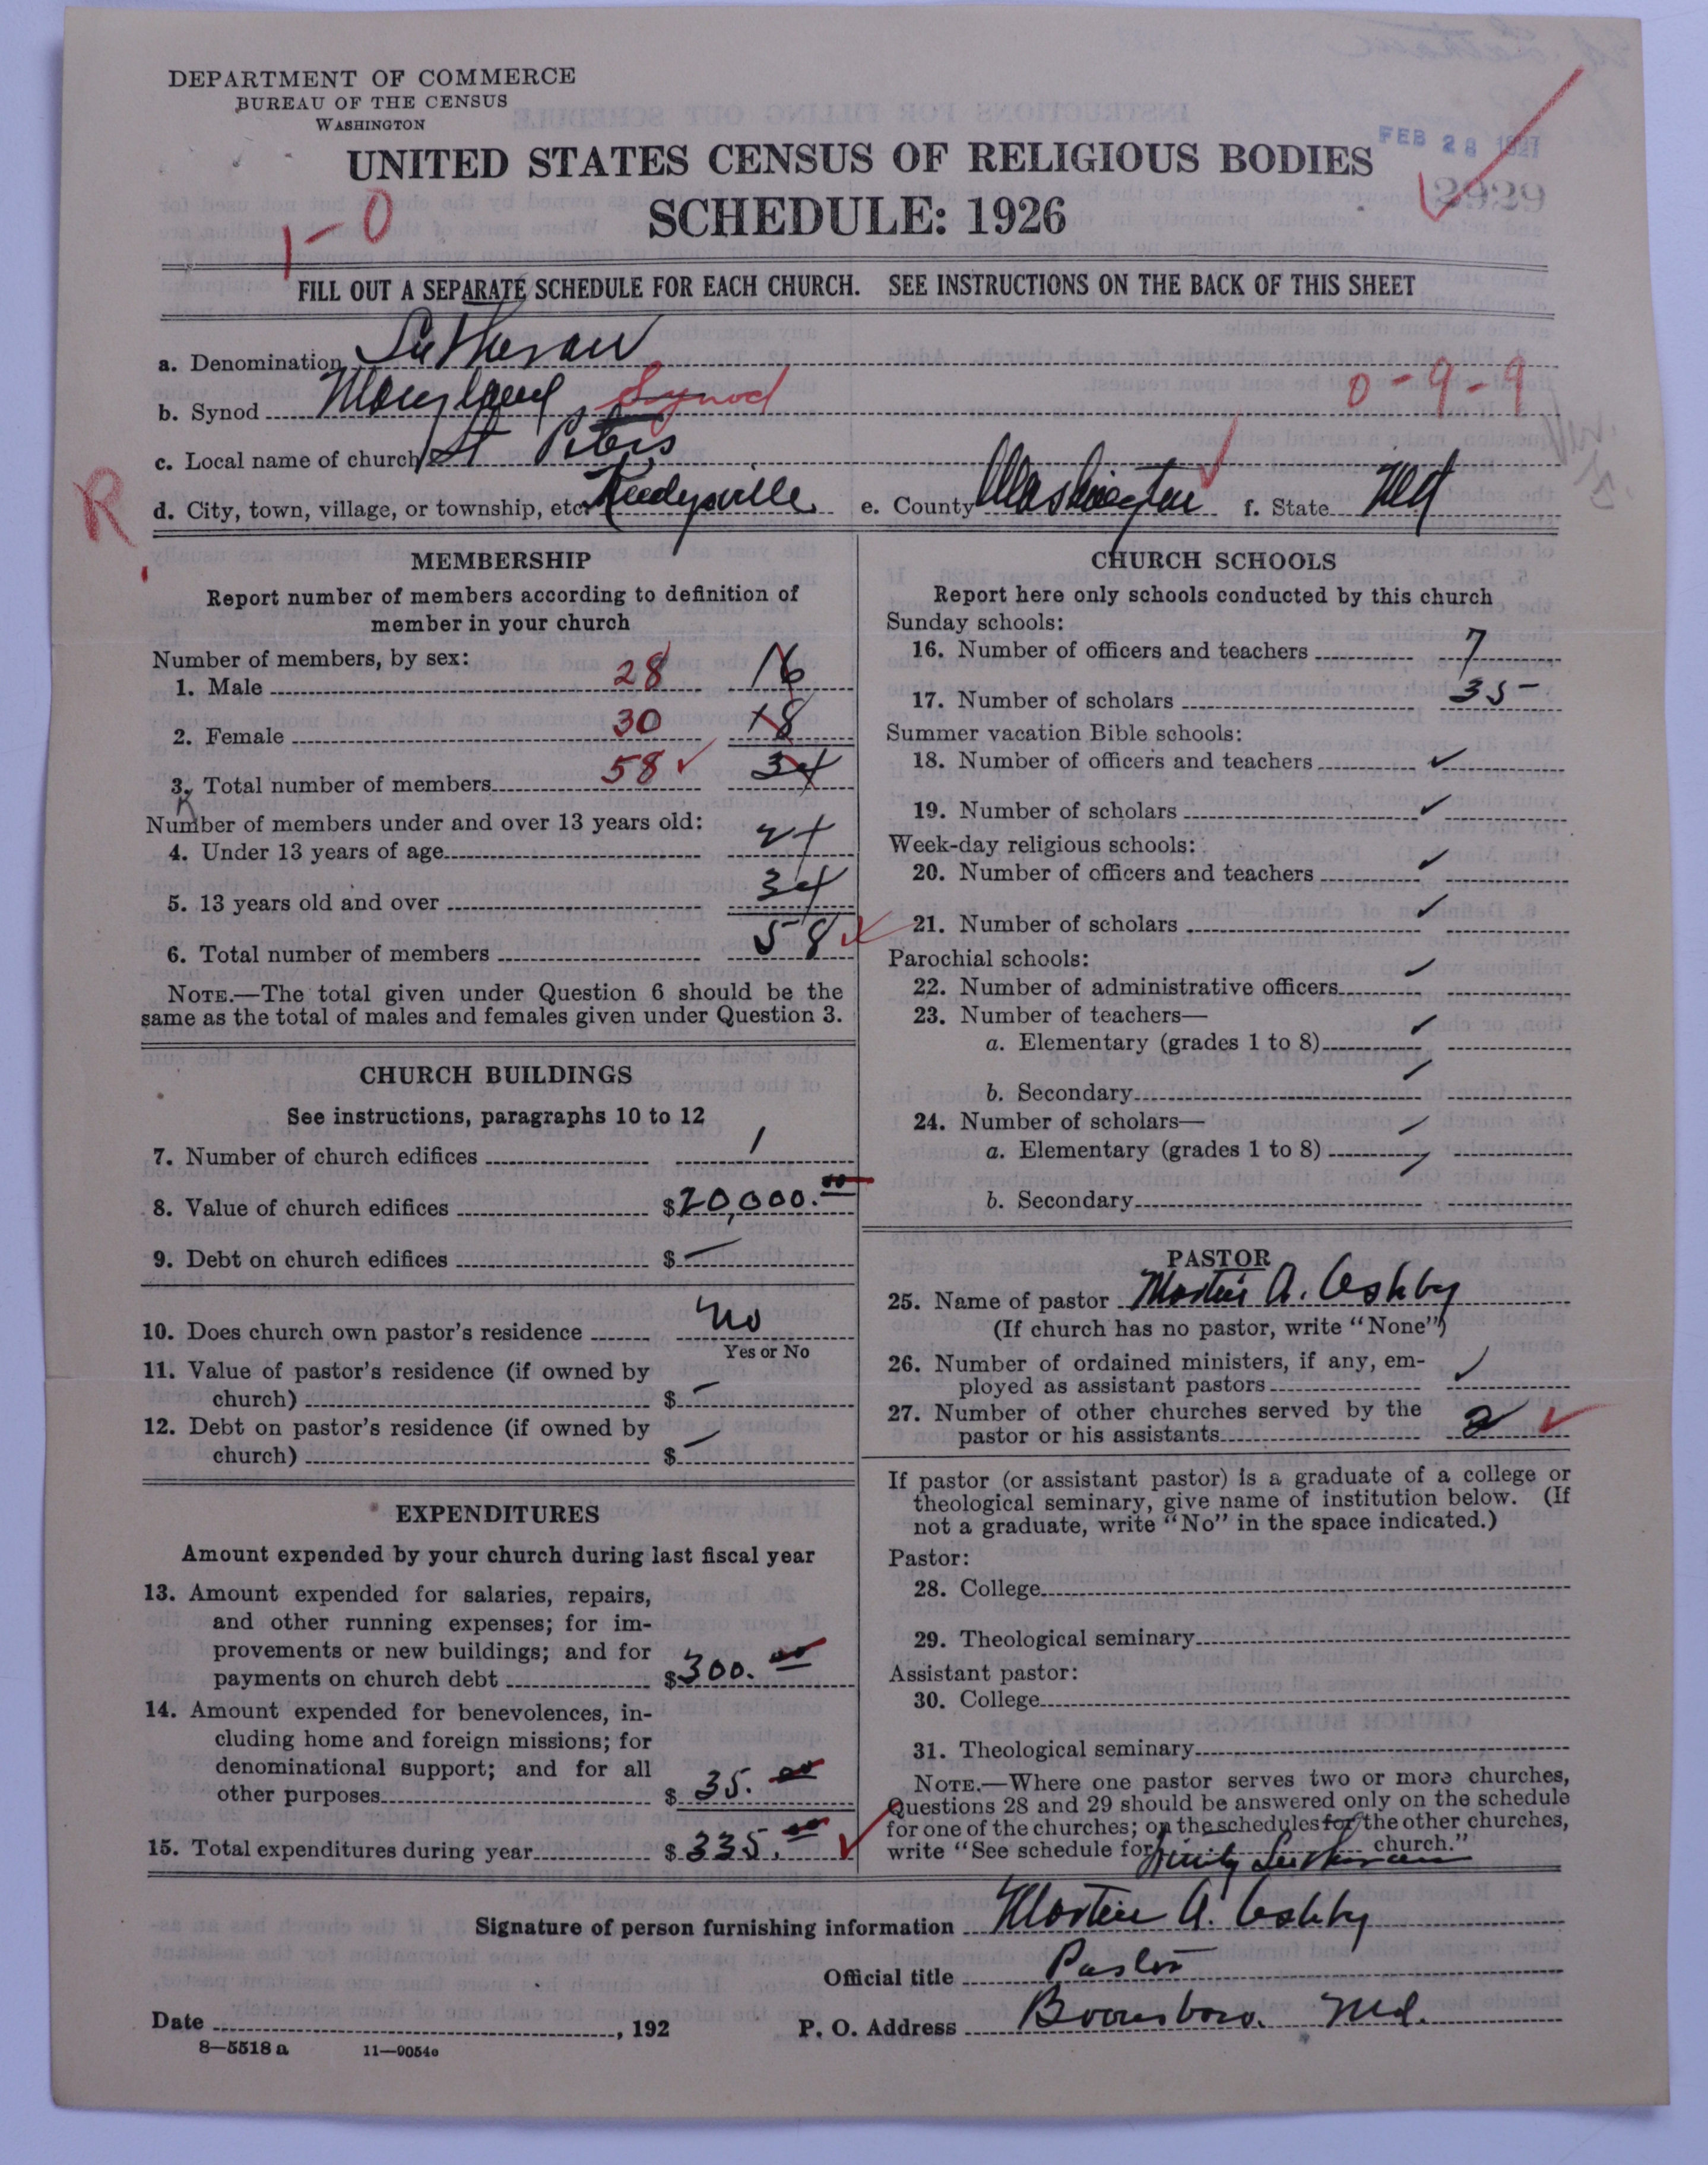 DEPARTMENT OF COMMERCE
BUREAU OF THE CENSUS
WASHINGTON
UNITED STATES CENSUS OF RELIGIOUS BODIES
FEB 28 1927
SCHEDULE: 1926
1-0
FILL OUT A SEPARATE SCHEDULE FOR EACH CHURCH. SEE INSTRUCTIONS ON THE BACK OF THIS SHEET
a. Denomination Lutheran
b. Synod Maryland Synod 0-9-9
c. Local name of church St Peters
R d. City, town, village, or township, etc. Keedysville e. County Washington f. State Md
MEMBERSHIP
Report number of members according to definition of
member in your church
Number of members, by sex:
1. Male 28 16
2. Female 30 18
3. Total number of members 58 34
Number of members under and over 13 years old:
4. Under 13 years of age 24
5. 13 years old and over 34
6. Total number of members 58
NOTE.—The total given under Question 6 should be the
same as the total of males and females given under Question 3.
CHURCH BUILDINGS
See instructions, paragraphs 10 to 12
7. Number of church edifices 1
8. Value of church edifices $20,000.00
9. Debt on church edifices $ —
10. Does church own pastor's residence No
Yes or No
11. Value of pastor's residence (if owned by
church) $ —
12. Debt on pastor's residence (if owned by
church) $ —
EXPENDITURES
Amount expended by your church during last fiscal year
13. Amount expended for salaries, repairs,
and other running expenses; for im-
provements or new buildings; and for
payments on church debt $300.00
14. Amount expended for benevolences, in-
cluding home and foreign missions; for
denominational support; and for all
other purposes $35.00
15. Total expenditures during year $335.00
CHURCH SCHOOLS
Report here only schools conducted by this church
Sunday schools:
16. Number of officers and teachers 7
17. Number of scholars 35
Summer vacation Bible schools:
18. Number of officers and teachers ✓
19. Number of scholars ✓
Week-day religious schools:
20. Number of officers and teachers ✓
21. Number of scholars ✓
Parochial schools:
22. Number of administrative officers ✓
23. Number of teachers—
a. Elementary (grades 1 to 8) ✓
b. Secondary ✓
24. Number of scholars—
a. Elementary (grades 1 to 8) ✓
b. Secondary ✓
PASTOR
25. Name of pastor Martin A. Ashby
(If church has no pastor, write "None")
26. Number of ordained ministers, if any, em-
ployed as assistant pastors ✓
27. Number of other churches served by the
pastor or his assistants 2
If pastor (or assistant pastor) is a graduate of a college or
theological seminary, give name of institution below. (If
not a graduate, write "No" in the space indicated.)
Pastor:
28. College
29. Theological seminary
Assistant pastor:
30. College
31. Theological seminary
NOTE.—Where one pastor serves two or more churches,
Questions 28 and 29 should be answered only on the schedule
for one of the churches; on the schedules for the other churches,
write "See schedule for Trinity Lutheran church."
Signature of person furnishing information Martin A. Ashby
Official title Pastor
Date , 192 P. O. Address Boonsboro. Md.
8—5518 a 11—9054a